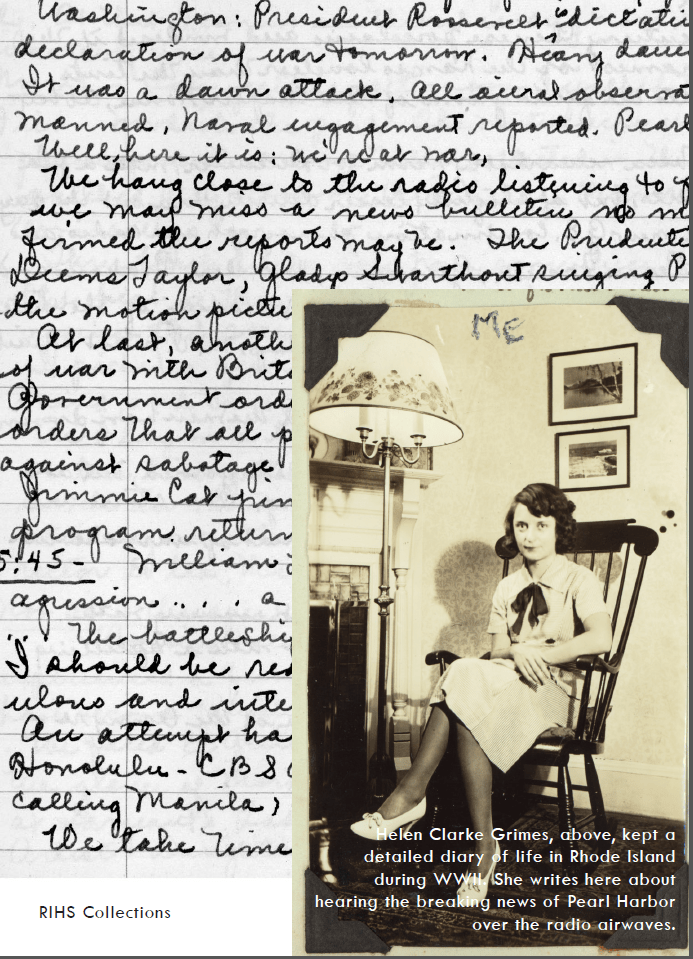 Washington: President Roosevelt "dictati
declaration of war tomorrow. Heavy
It was a dawn attack. All aerial observa
manned, Naval engagement reported. Pearl
Well, here it is: we're at war,
We hang close to the radio listening to
we may miss a news bulletin no m
firmed the reports may be. The Prudenti
Deems Taylor, Gladys Swarthout singing P
the motion pictu
At last, anoth
of war with Brit
Government ord
orders that all p
against sabotage
Jimmie
program return
5:45- William
agression .. . . a
... The battleshi
I should be rea
ulous and inte
An attempt ha
Honolulu - CBS
calling Manila,
We take time
ME
Helen Clarke Grimes, above, kept a
detailed diary of life in Rhode Island
during WWII. She writes here about
hearing the breaking news of Pearl Harbor
over the radio airwaves.
RIHS Collections